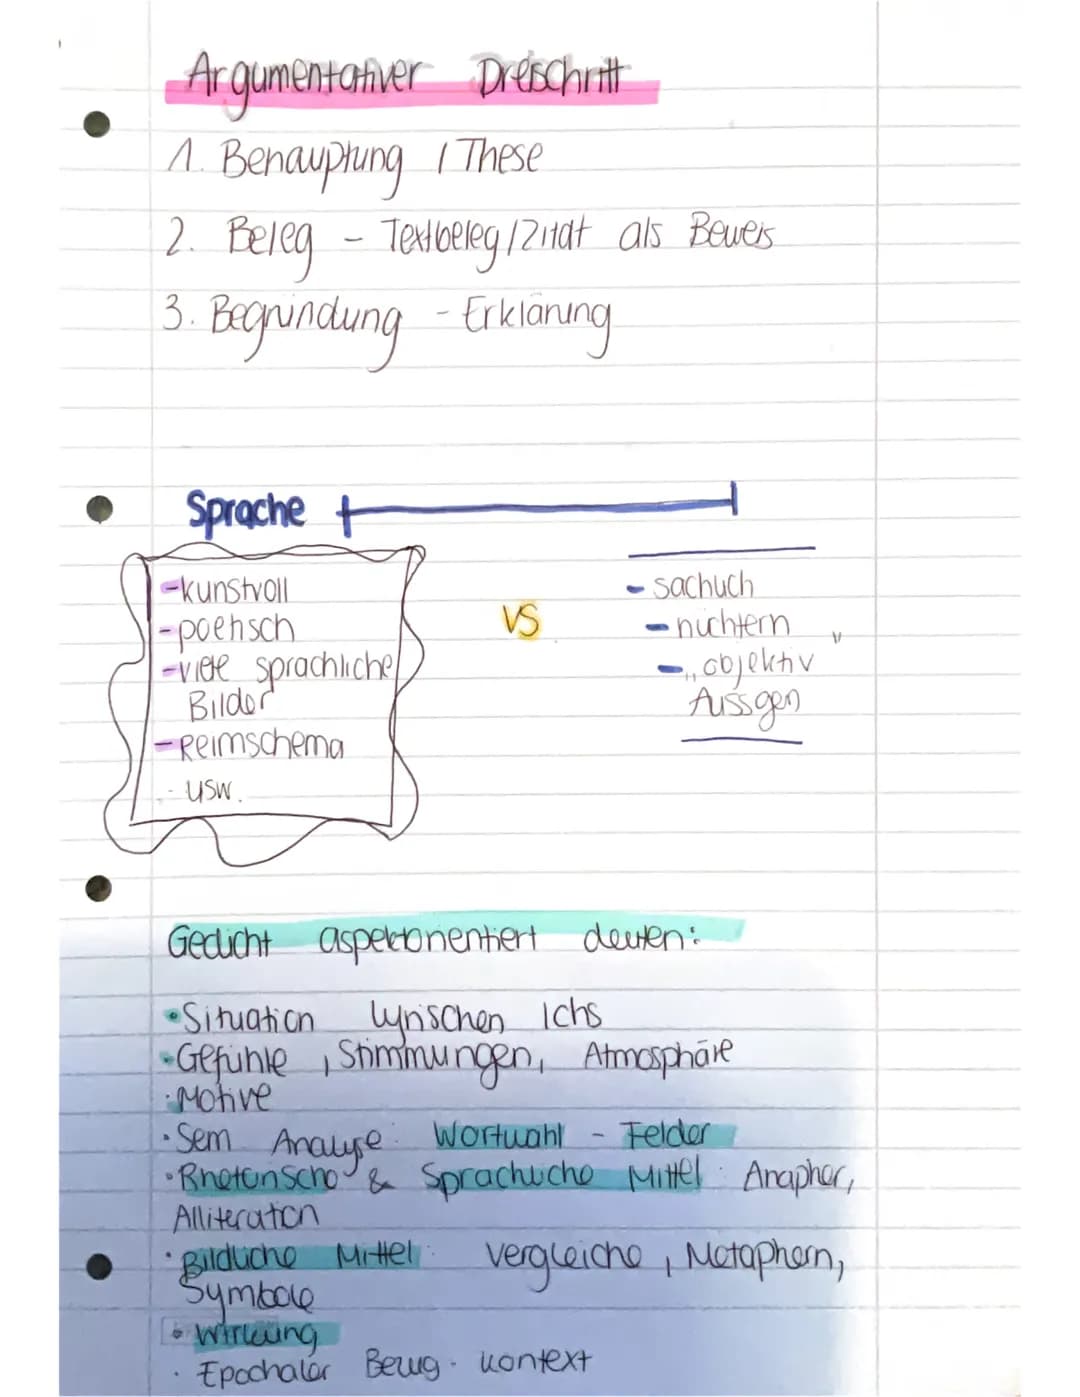 Argumentativer Dreischritt
1. Behauptung / These
2. Beleg - Textbeleg/Zitat als Beweis
3. Begründung - Erklärung
Sprache
-kunstvoll
-poetisch
-viele sprachliche
Bilder
-Reimschema
- usw.
VS
- sachlich
- nüchtern
- „objektiv"
Aussgen
Gedicht aspektorientiert deuten:
•Situation lyrischen Ichs
•Gefühle, Stimmungen, Atmosphäre
•Motive
•Sem Analyse: Wortwahl - Felder
•Rhetorische & Sprachliche Mittel: Anapher,
Alliteration
•Bildliche Mittel: Vergleiche, Metaphern,
Symbole
• Wirkung
• Epochaler Bezug - Kontext